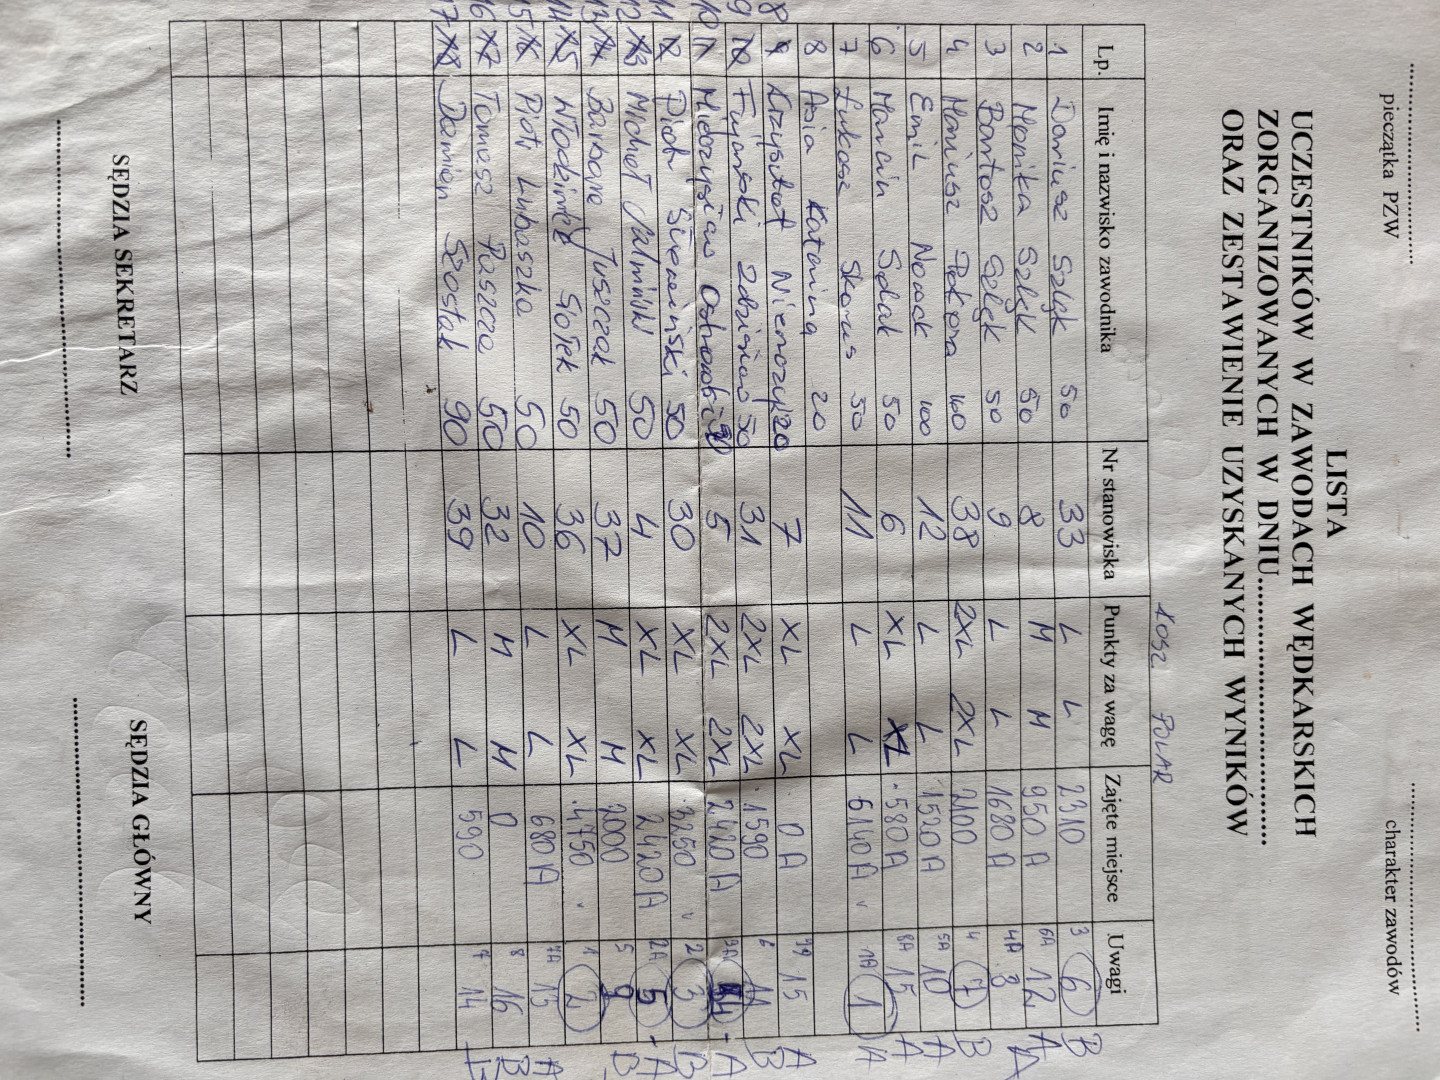 pieczątka PZW
charakter zawodów
LISTA
UCZESTNIKÓW W ZAWODACH WĘDKARSKICH
ZORGANIZOWANYCH W DNIU
ORAZ ZESTAWIENIE UZYSKANYCH WYNIKÓW
KOSZ POLAR
Lp. Imię i nazwisko zawodnika Nr stanowiska Punkty za wagę Zajęte miejsce Uwagi
1 Dariusz Szlęk 50 33 L L 2310 3 6 B
2 Monika Szlęk 50 8 M M 950 A 6A 12 A
3 Bartosz Szlęk 50 9 L L 1680 A 4A 8 A
4 Mariusz Pokora 100 38 2XL 2XL 2100 4 7 B
5 Emil Nowak 100 12 L L 1520 A 5A 10 A
6 Marcin Sędak 50 6 XL XL 580 A 8A 15 A
7 Łukasz Skorus 50 11 L L 6140 A 1A 1 A
8 Asia Katarina 20
8 Krzysztof 20 7 XL XL 0 A 15 A
9 Zdzisław 50 31 2XL 2XL 1590 6 11 B
10 Mieczysław 5 2XL 2XL 2420 A 3A 4 A
11 Piotr 50 30 XL XL 3250 2 3 B
12 Michał 50 4 XL XL 2420 A 2A 5 A
13 Barbara Juszczak 50 37 M M 2000 5 9 B
14 Włodzimierz Sołek 50 36 XL XL 4750 1 2
15 Piotr Lubaszka 50 10 L L 680 A 7A 13 A
16 Tomasz Paszcza 50 32 M M 0 8 16 B
17 Damian Szostak 90 39 L L 590 7 14
SĘDZIA SEKRETARZ
SĘDZIA GŁÓWNY